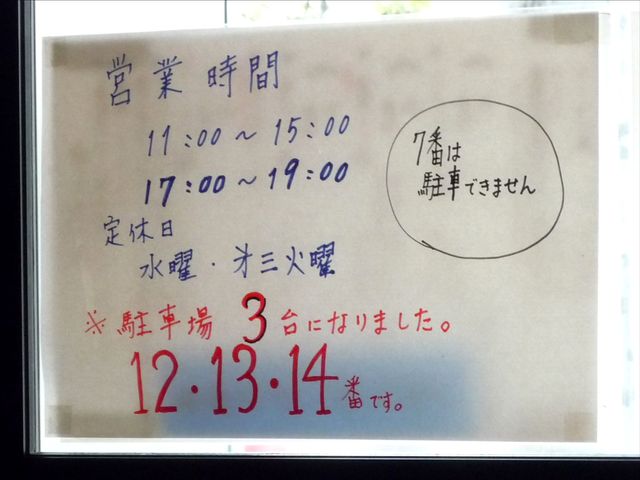 営業時間
11:00～15:00
17:00～19:00
定休日
水曜・才三火曜
7番は
駐車できません
※駐車場 3台になりました。
12・13・14番です。